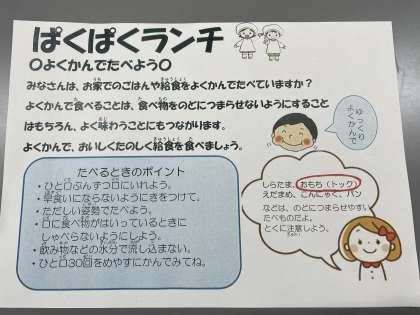 ぱくぱくランチ
〇よくかんでたべよう〇
みなさんは、お家でのごはんや給食をよくかんでたべていますか？
よくかんで食べることは、食べ物をのどにつまらせないようにすること
はもちろん、よく味わうことにもつながります。
よくかんで、おいしくたのしく給食を食べましょう。
ゆっくり
よくかんで
たべるときのポイント
・ひと口ぶんずつ口にいれよう。
・早食いにならないようにきをつけて。
・ただしい姿勢でたべよう。
・口に食べ物がはいっているときに
しゃべらないようにしよう。
・飲み物などの水分で流し込まない。
・ひと口30回をめやすにかんでみてね。
しらたま、おもち（トック）
えだまめ、こんにゃく、パン
などは、のどにつまらせやすい
たべものだよ。
とくに注意しよう。